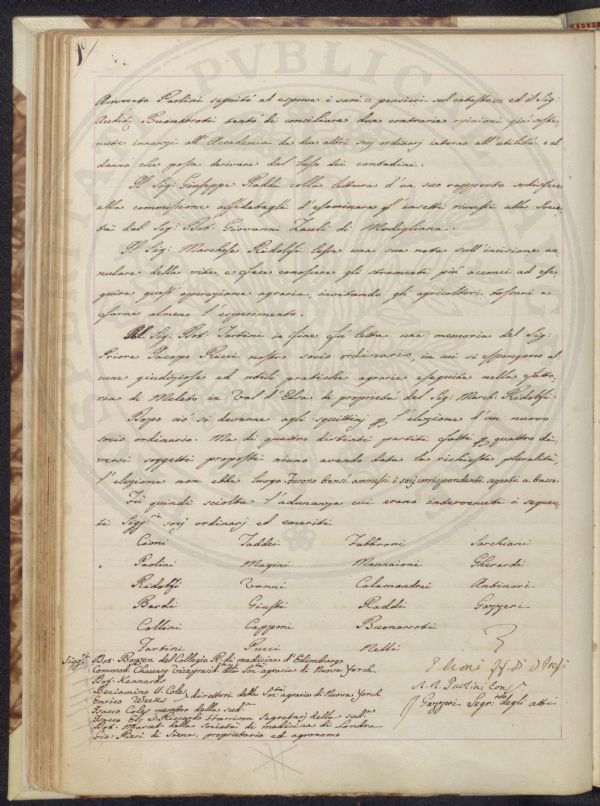 Avvocato Paolini seguitò ad esporre i suoi pensieri sul catasto ed il Sig:
Audit: Buonarroti tentò di conciliare due contrarie opinioni già soste-
nute innanzi all'Accademia da due altri socj ordinarj intorno all'utilità o al
danno che possa derivare dal lusso dei contadini.
Il Sig: Giuseppe Raddi colla lettura d'un suo rapporto sodisfece
alla commissione affidatagli d'esaminare gl'insetti rimessi alla Socie-
tà dal Sig: Dot: Giovanni Zauli di Modigliana.
Il Sig: Marchese Ridolfi lesse una sua nota sull'incisione an-
nulare della vite, e fece conoscere gli strumenti più acconci ad ese-
guire quest'operazione agraria, invitando gli agricoltori toscani a
farne almeno l'esperimento.
Dal Sig: Dot: Tartini in fine fu letta una memoria del Sig:
Priore Jacopo Ricci nostro socio ordinario, in cui si espongono al-
cune giudiziose ed utili pratiche agrarie eseguite nella fatto-
ria di Meleto in Val d'Elsa di proprietà del Sig: March: Ridolfi.
Dopo ciò si devenne agli squittinj p l'elezione d'un nuovo
socio ordinario. Ma di quattro distinti partiti fatti p quattro di-
versi soggetti proposti niuno avendo data la richiesta pluralità,
l'elezione non ebbe luogo. furono bensì ammessi i socj corrispondenti segnati a basso.
Fu quindi sciolta l'adunanza cui erano intervenuti i seguen-
ti Sigg:ri socj ordinarj ed emeriti
Cioni Taddei Fabbroni Sarchiani
Paolini Magini Mannaioni Gherardi
Ridolfi Vanni Calamandrei Antinori
Bardi Giusti Raddi Gazzeri
Collini Capponi Buonarroti
Tartini Pucci Nelli
Sigg:ri Dot: del Collegio R: di medicina d'Edimburgo
Commod: Chauncy Vicepresid: della Soc: agraria di Nuova Yorch
Dot: Kennards
Beniamino G. Cole
Enrico Weeks direttori della Soc: agraria di Nuova Yorch
Isacco Coly membro della sud:a
Isacco Ely e Riccardo Harrison Segretarj della sud:a
Dot: Marcet della Società di medicina di Londra
Gio: Pieri di Siena, proprietario ed agronomo
G. Cioni ff. di Presi
A. A. Paolini Cons
Gazzeri Segr: degli atti